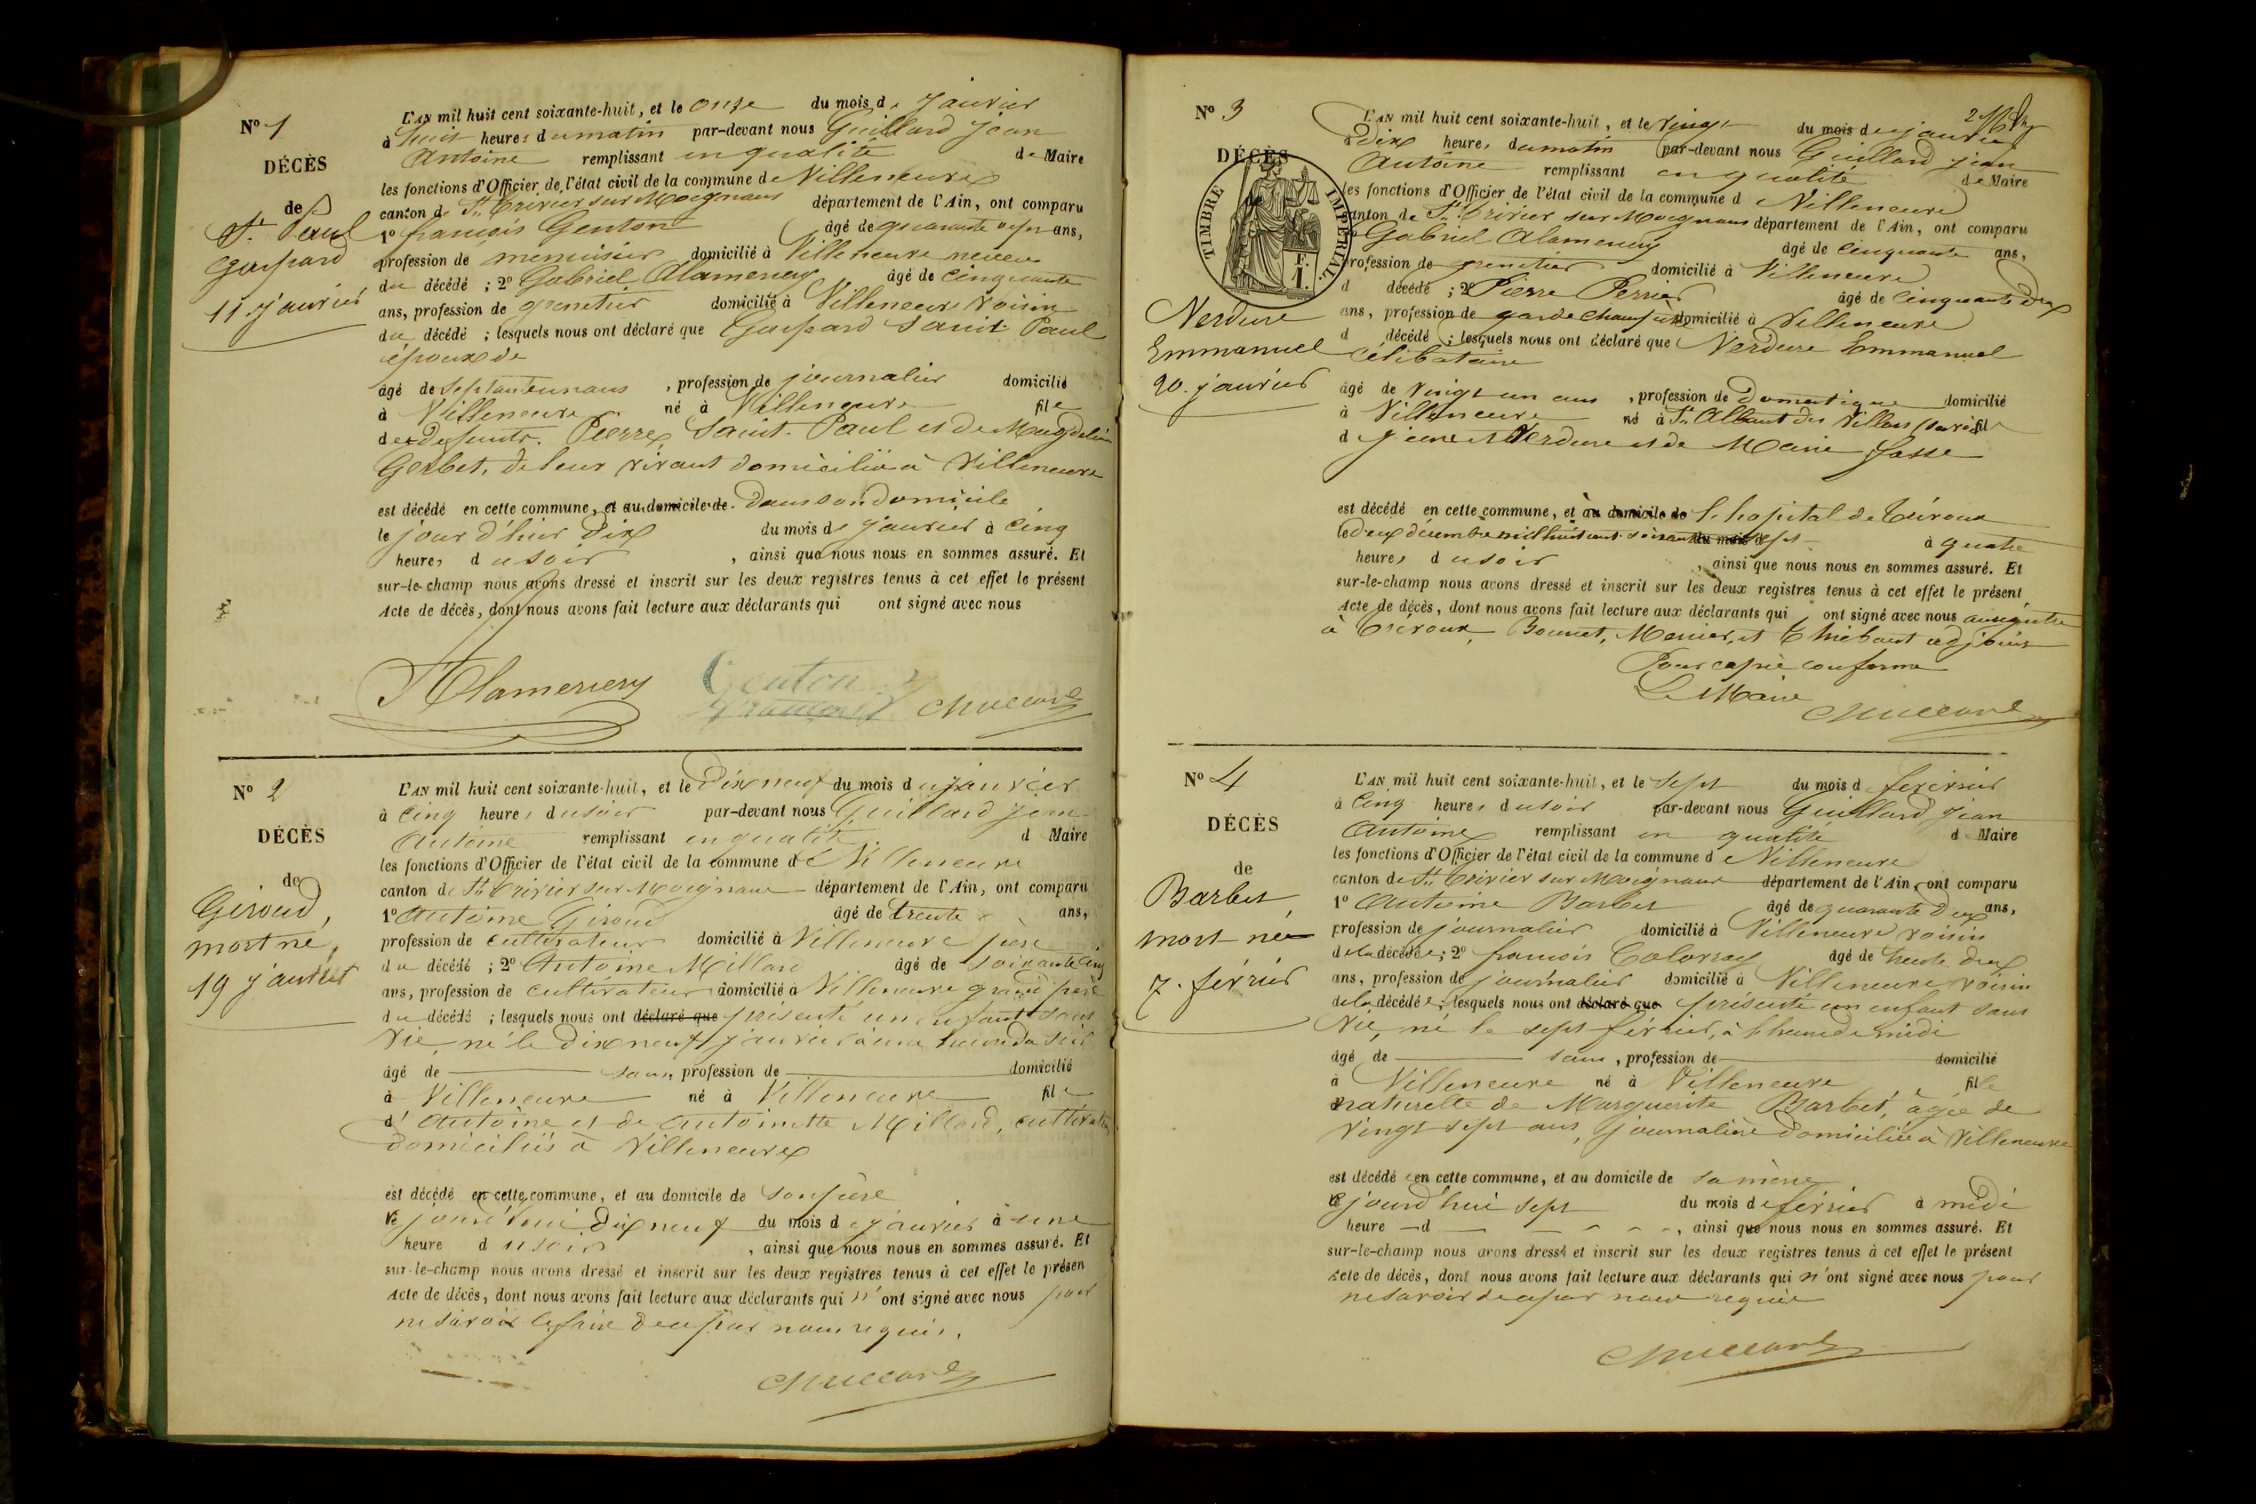 N° 1
DÉCÈS
de
St. Paul
Gaspard
11 janvier
L'AN mil huit cent soixante-huit, et le onze du mois de janvier
à huit heures du matin par-devant nous Guillard Jean
Antoine remplissant en qualité de Maire
les fonctions d'Officier de l'état civil de la commune de Villeneuve
canton de St. Trivier sur Moignans département de l'Ain, ont comparu
1° françois Genton âgé de quarante ans,
profession de menuisier domicilié à Villeneuve neveu
du décédé ; 2° Gabriel Alamercery âgé de cinquante
ans, profession de grenetier domicilié à Villeneuve voisin
du décédé ; lesquels nous ont déclaré que Gaspard Saint Paul
époux de
âgé de septante un ans, profession de journalier domicilié
à Villeneuve né à Villeneuve fils
des défunts Pierre Saint-Paul et de Magdeleine
Gerbet, de leur vivant domiciliés à Villeneuve
est décédé en cette commune, et au domicile de dans son domicile
le jour d'hier dix du mois de janvier à cinq
heures du soir, ainsi que nous nous en sommes assuré. Et
sur-le-champ nous avons dressé et inscrit sur les deux registres tenus à cet effet le présent
Acte de décès, dont nous avons fait lecture aux déclarants qui ont signé avec nous
Alamercery Genton françois Guillard
N° 2
DÉCÈS
de
Giroud,
mort né,
19 janvier
L'AN mil huit cent soixante-huit, et le dix neuf du mois de janvier
à cinq heures du soir par-devant nous Guillard Jean
Antoine remplissant en qualité de Maire
les fonctions d'Officier de l'état civil de la commune de Villeneuve
canton de St. Trivier sur Moignans département de l'Ain, ont comparu
1° Antoine Giroud âgé de trente ans,
profession de cultivateur domicilié à Villeneuve père
du décédé ; 2° Antoine Millard âgé de soixante cinq
ans, profession de cultivateur domicilié à Villeneuve grand père
du décédé ; lesquels nous ont déclaré que présenté un enfant sans
vie, né le dix neuf janvier à une heure du soir
âgé de sans, profession de domicilié
à Villeneuve né à Villeneuve fils
d'Antoine et de Antoinette Millard, cultivateurs
domiciliés à Villeneuve
est décédé en cette commune, et au domicile de son père
ce jourd'hui dix neuf du mois de janvier à une
heure du soir, ainsi que nous nous en sommes assuré. Et
sur-le-champ nous avons dressé et inscrit sur les deux registres tenus à cet effet le présen
Acte de décès, dont nous avons fait lecture aux déclarants qui n'ont signé avec nous pour
ne savoir le faire de ce par nous requis.
Guillard
N° 3
DÉCÈS
TIMBRE IMPÉRIAL
1 F.
Verdure
Emmanuel
20. janvier
L'AN mil huit cent soixante-huit, et le vingt du mois de janvier
à dix heures du matin par-devant nous Guillard Jean
Antoine remplissant en qualité de Maire
les fonctions d'Officier de l'état civil de la commune de Villeneuve
canton de St. Trivier sur Moignans département de l'Ain, ont comparu
1° Gabriel Alamercery âgé de cinquante ans,
profession de grenetier domicilié à Villeneuve
d décédé ; 2° Pierre Perrier âgé de cinquante deux
ans, profession de garde champêtre domicilié à Villeneuve
d décédé ; lesquels nous ont déclaré que Verdure Emmanuel
célibataire
âgé de vingt un ans, profession de domestique domicilié
à Villeneuve né à St. Albant des Villars (Savoie) fils
de jeune et Verdure et de Marie fasse
est décédé en cette commune, et au domicile de à l'hopital de Trévoux
le deux décembre mil huit cent soixante sept du mois d à quatre
heures du soir, ainsi que nous nous en sommes assuré. Et
sur-le-champ nous avons dressé et inscrit sur les deux registres tenus à cet effet le présent
Acte de décès, dont nous avons fait lecture aux déclarants qui ont signé avec nous au registre
à Trévoux, Bonnet, Manier, et Thiébaut adjoint
Pour copie conforme
Le Maire
Guillard
N° 4
DÉCÈS
de
Barbet,
mort née
7. février
L'AN mil huit cent soixante-huit, et le sept du mois de février
à cinq heures du soir par-devant nous Guillard Jean
Antoine remplissant en qualité de Maire
les fonctions d'Officier de l'état civil de la commune de Villeneuve
canton de St. Trivier sur Moignans département de l'Ain, ont comparu
1° Antoine Barbet âgé de quarante deux ans,
profession de journalier domicilié à Villeneuve voisin
de la décédée ; 2° françois Colovray âgé de trente deux
ans, profession de journalier domicilié à Villeneuve voisin
de la décédée ; lesquels nous ont déclaré que présenté un enfant sans
vie, né le sept février, à l'heure de midi
âgé de sans, profession de domicilié
à Villeneuve né à Villeneuve fille
naturelle de Marguerite Barbet, âgée de
vingt sept ans, journalière domiciliée à Villeneuve
est décédée en cette commune, et au domicile de sa mère
ce jourd'hui sept du mois de février à midi
heure d, ainsi que nous nous en sommes assuré. Et
sur-le-champ nous avons dressé et inscrit sur les deux registres tenus à cet effet le présent
Acte de décès, dont nous avons fait lecture aux déclarants qui n'ont signé avec nous pour
ne savoir de ce par nous requis
Guillard